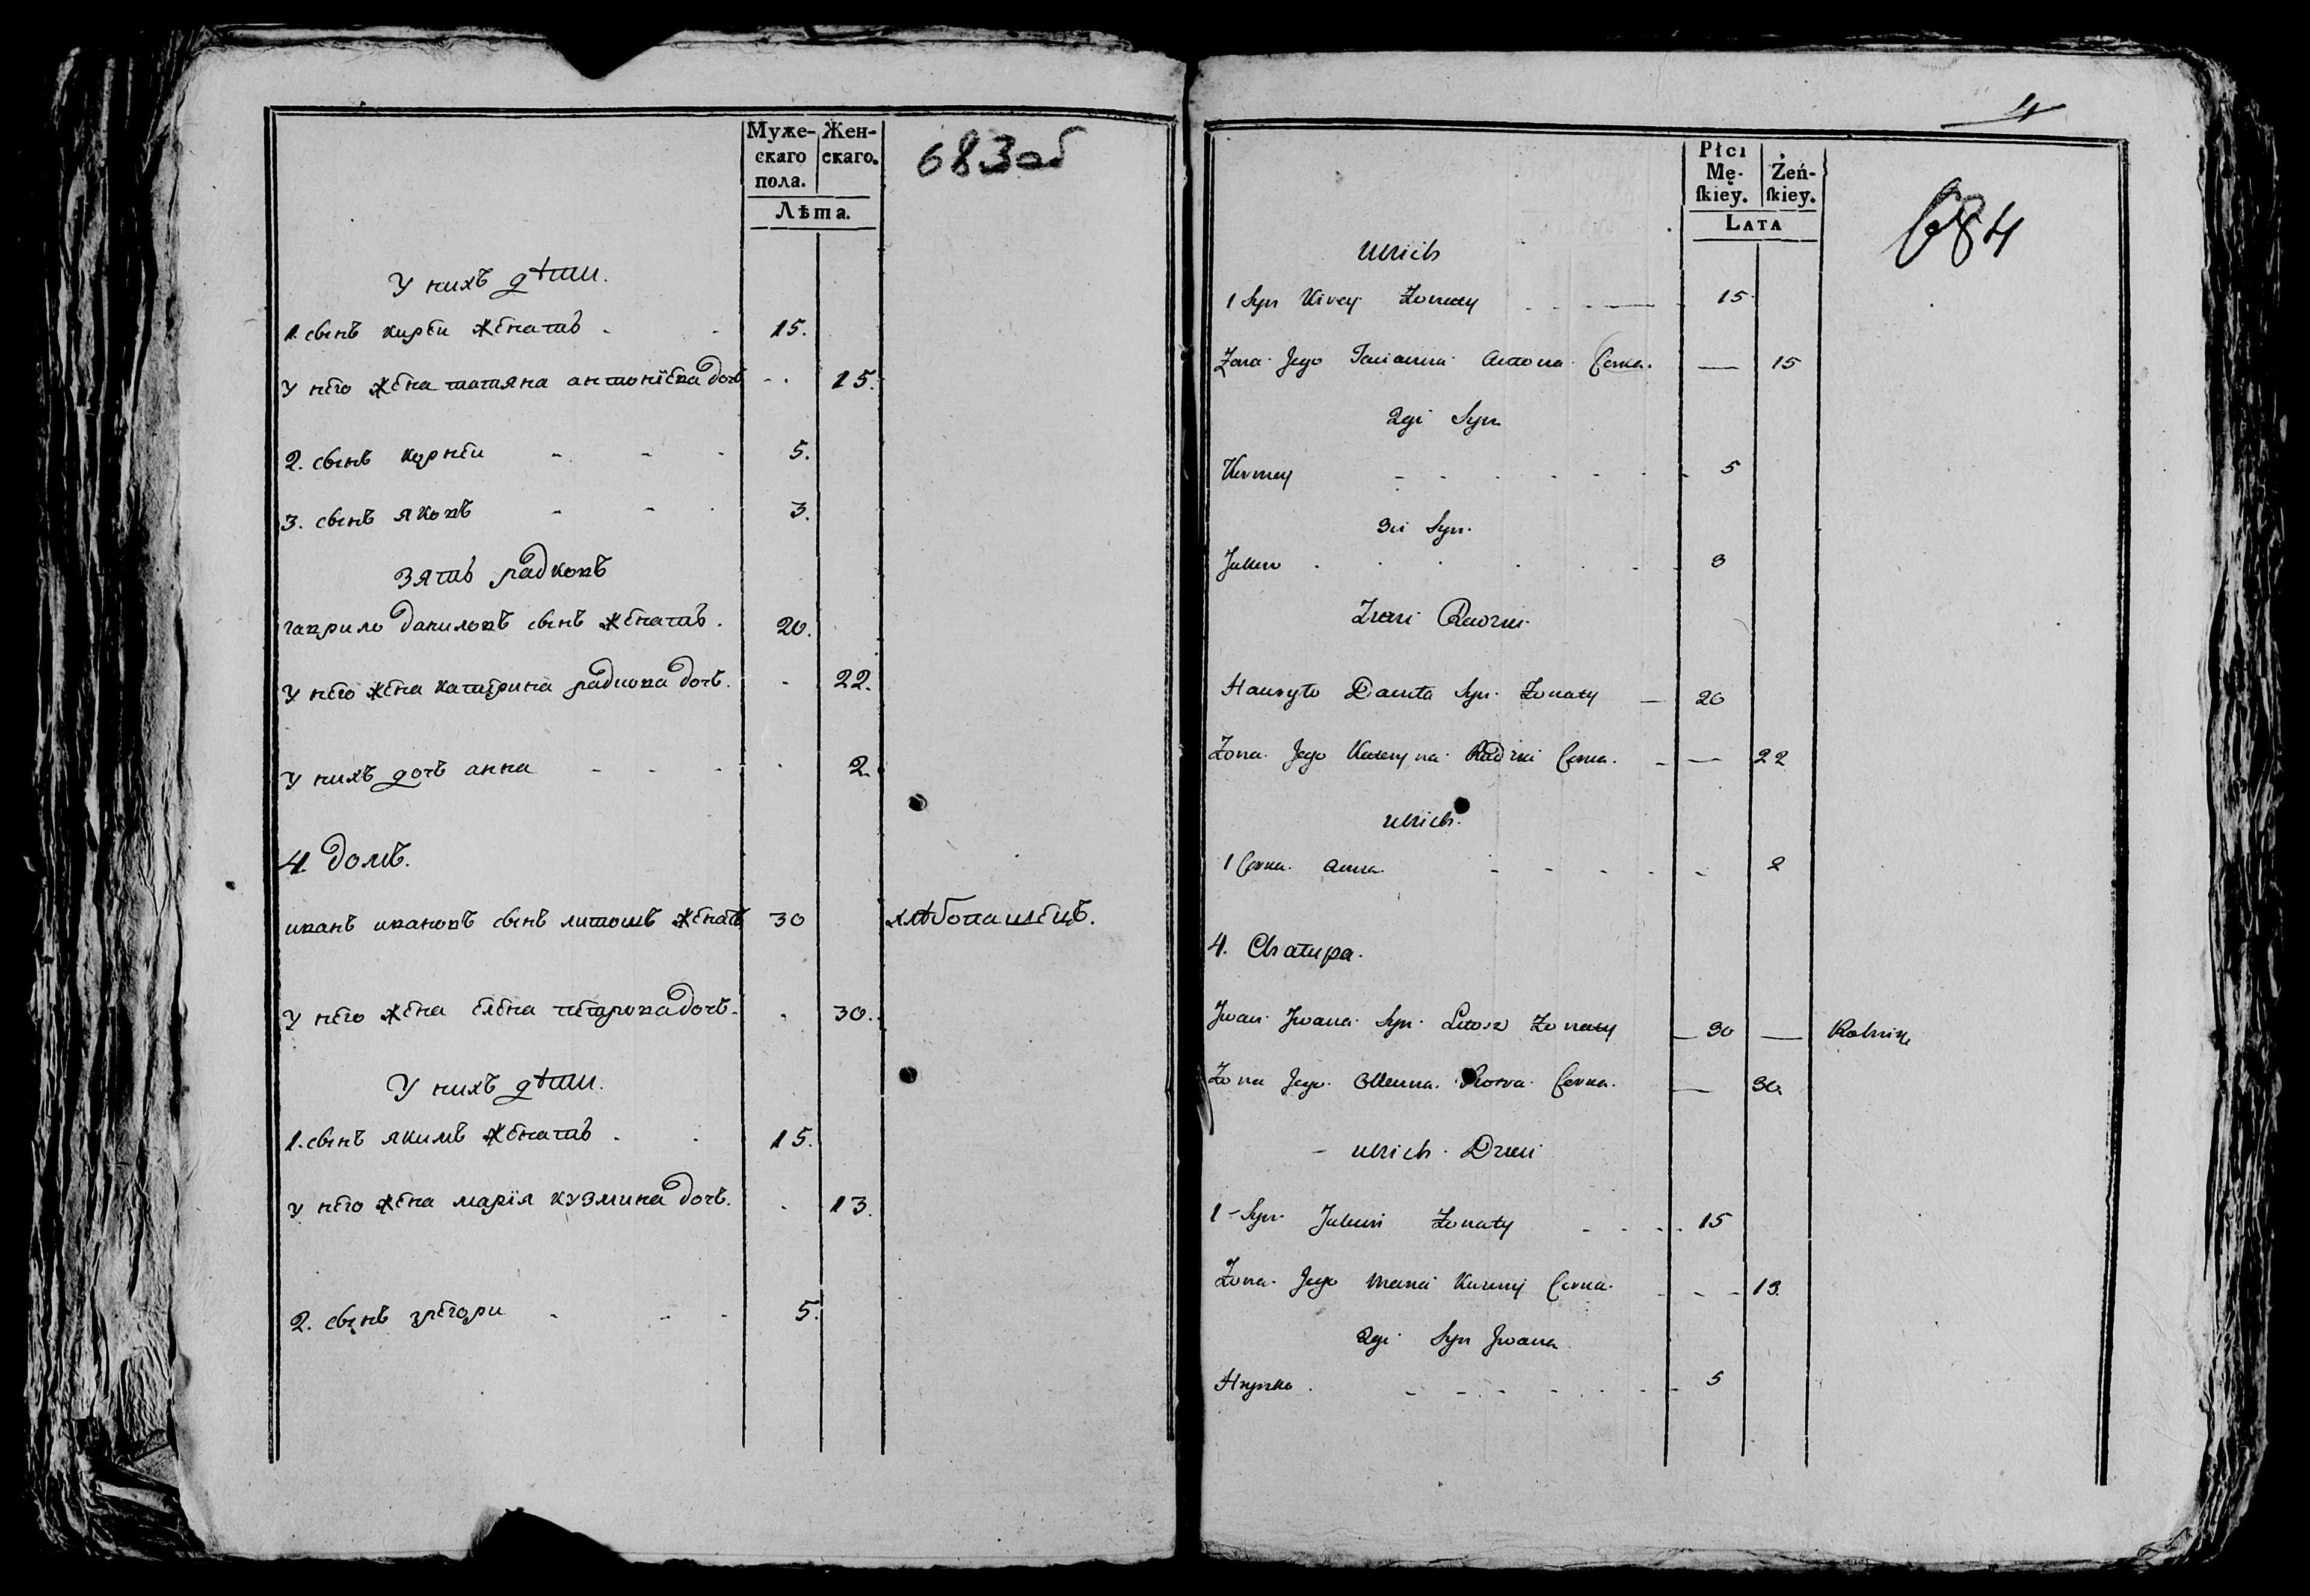 Муже- Жен-
скаго скаго.
пола.
Лѣта.
683об
У нихъ дѣти.
1. сынъ кирей женатъ 15.
у него жена татяна антонiева дочь 15.
2. сынъ корней 5.
3. сынъ яковъ 3.
Зять радковъ
гаврило даниловъ сынъ женатъ. 20.
у него жена катерина радкова дочь. 22.
у нихъ дочь анна 2.
4 домъ.
иванъ ивановъ сынъ литошъ женатъ 30 хлѣбопашецъ.
у него жена елена петрова дочь. 30.
У нихъ дѣти.
1. сынъ якимъ женатъ 15.
у него жена марiя кузмина дочь. 13.
2. сынъ григори 5.
4
Płci
Mę- Żeń-
skiey. skiey.
LATA
684
U nich
1 Syn Kirey Żonaty 15
Żona Jego Tacianna Antona Corka. 15
2gi Syn
Kurney 5
3ci Syn.
Jakow 3
Zięć Radzki
Hawryło Daniła Syn Żonaty 20
Żona Jego Kateryna Radzki Corka. 22
u nich.
1 Corka Anna 2
4. Chałupa.
Jwan Jwana Syn Litosz Żonaty 30 Rolnik
Żona Jego Ollenna Corka. 30.
u nich Dzieci
1 Syn Jakim Żonaty 15
Żona Jego Maria Kuzmy Corka. 13.
2gi Syn Jwana
Hryszko 5